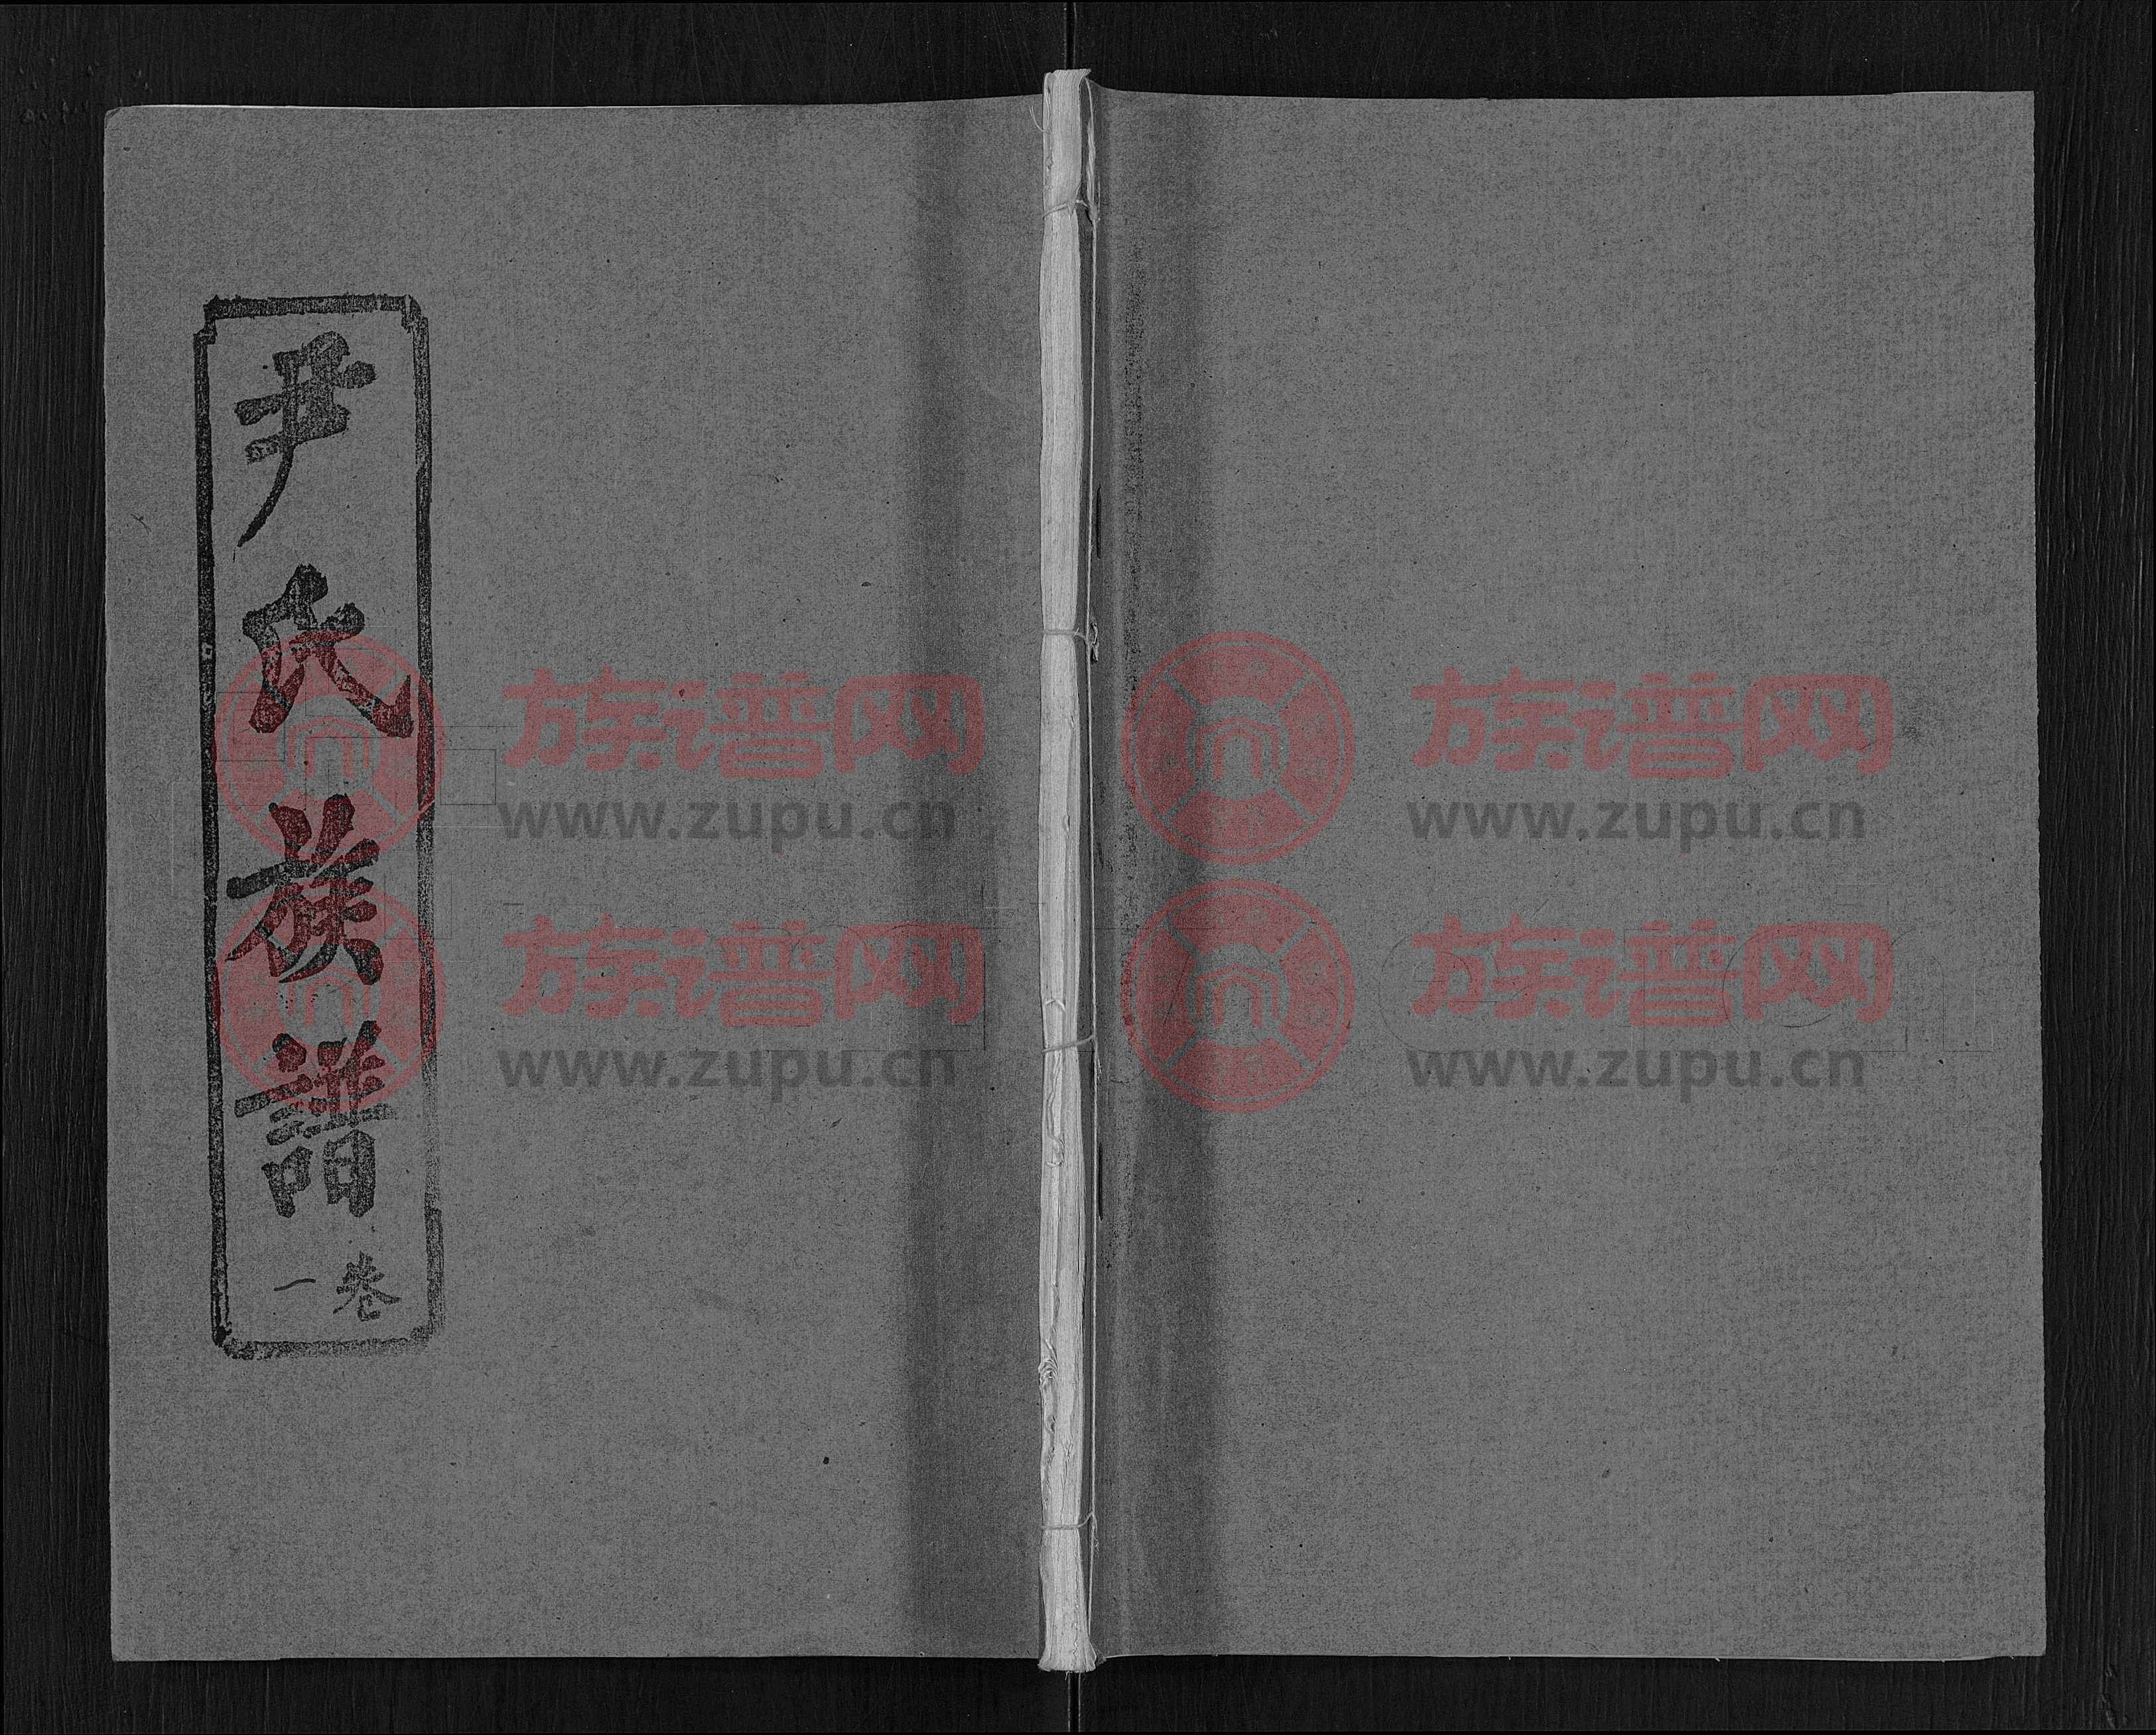 尹氏族譜
卷一
族谱网
www.zupu.cn
族谱网
www.zupu.cn
族谱网
www.zupu.cn
族谱网
www.zupu.cn